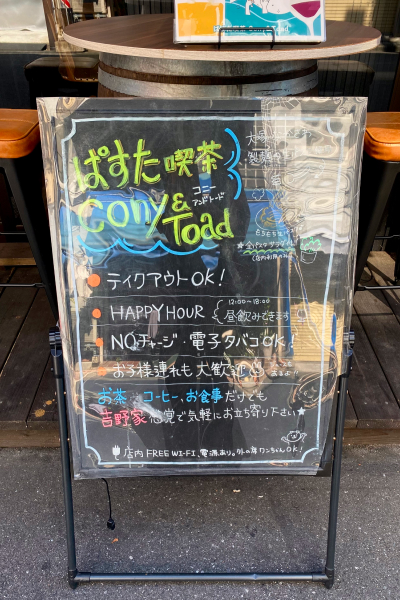 ぱすた喫茶
Cony & Toad
コニー
アンドトード
テイクアウトOK!
HAPPY HOUR
12:00〜18:00
昼飲みできます
NOチャージ・電子タバコOK!
お子様連れも大歓迎
お茶 コーヒー、お食事だけでも
吉野家感覚で気軽にお立ち寄り下さい★
店内 FREE WI-FI、電源あり。外の席ワンちゃんOK!